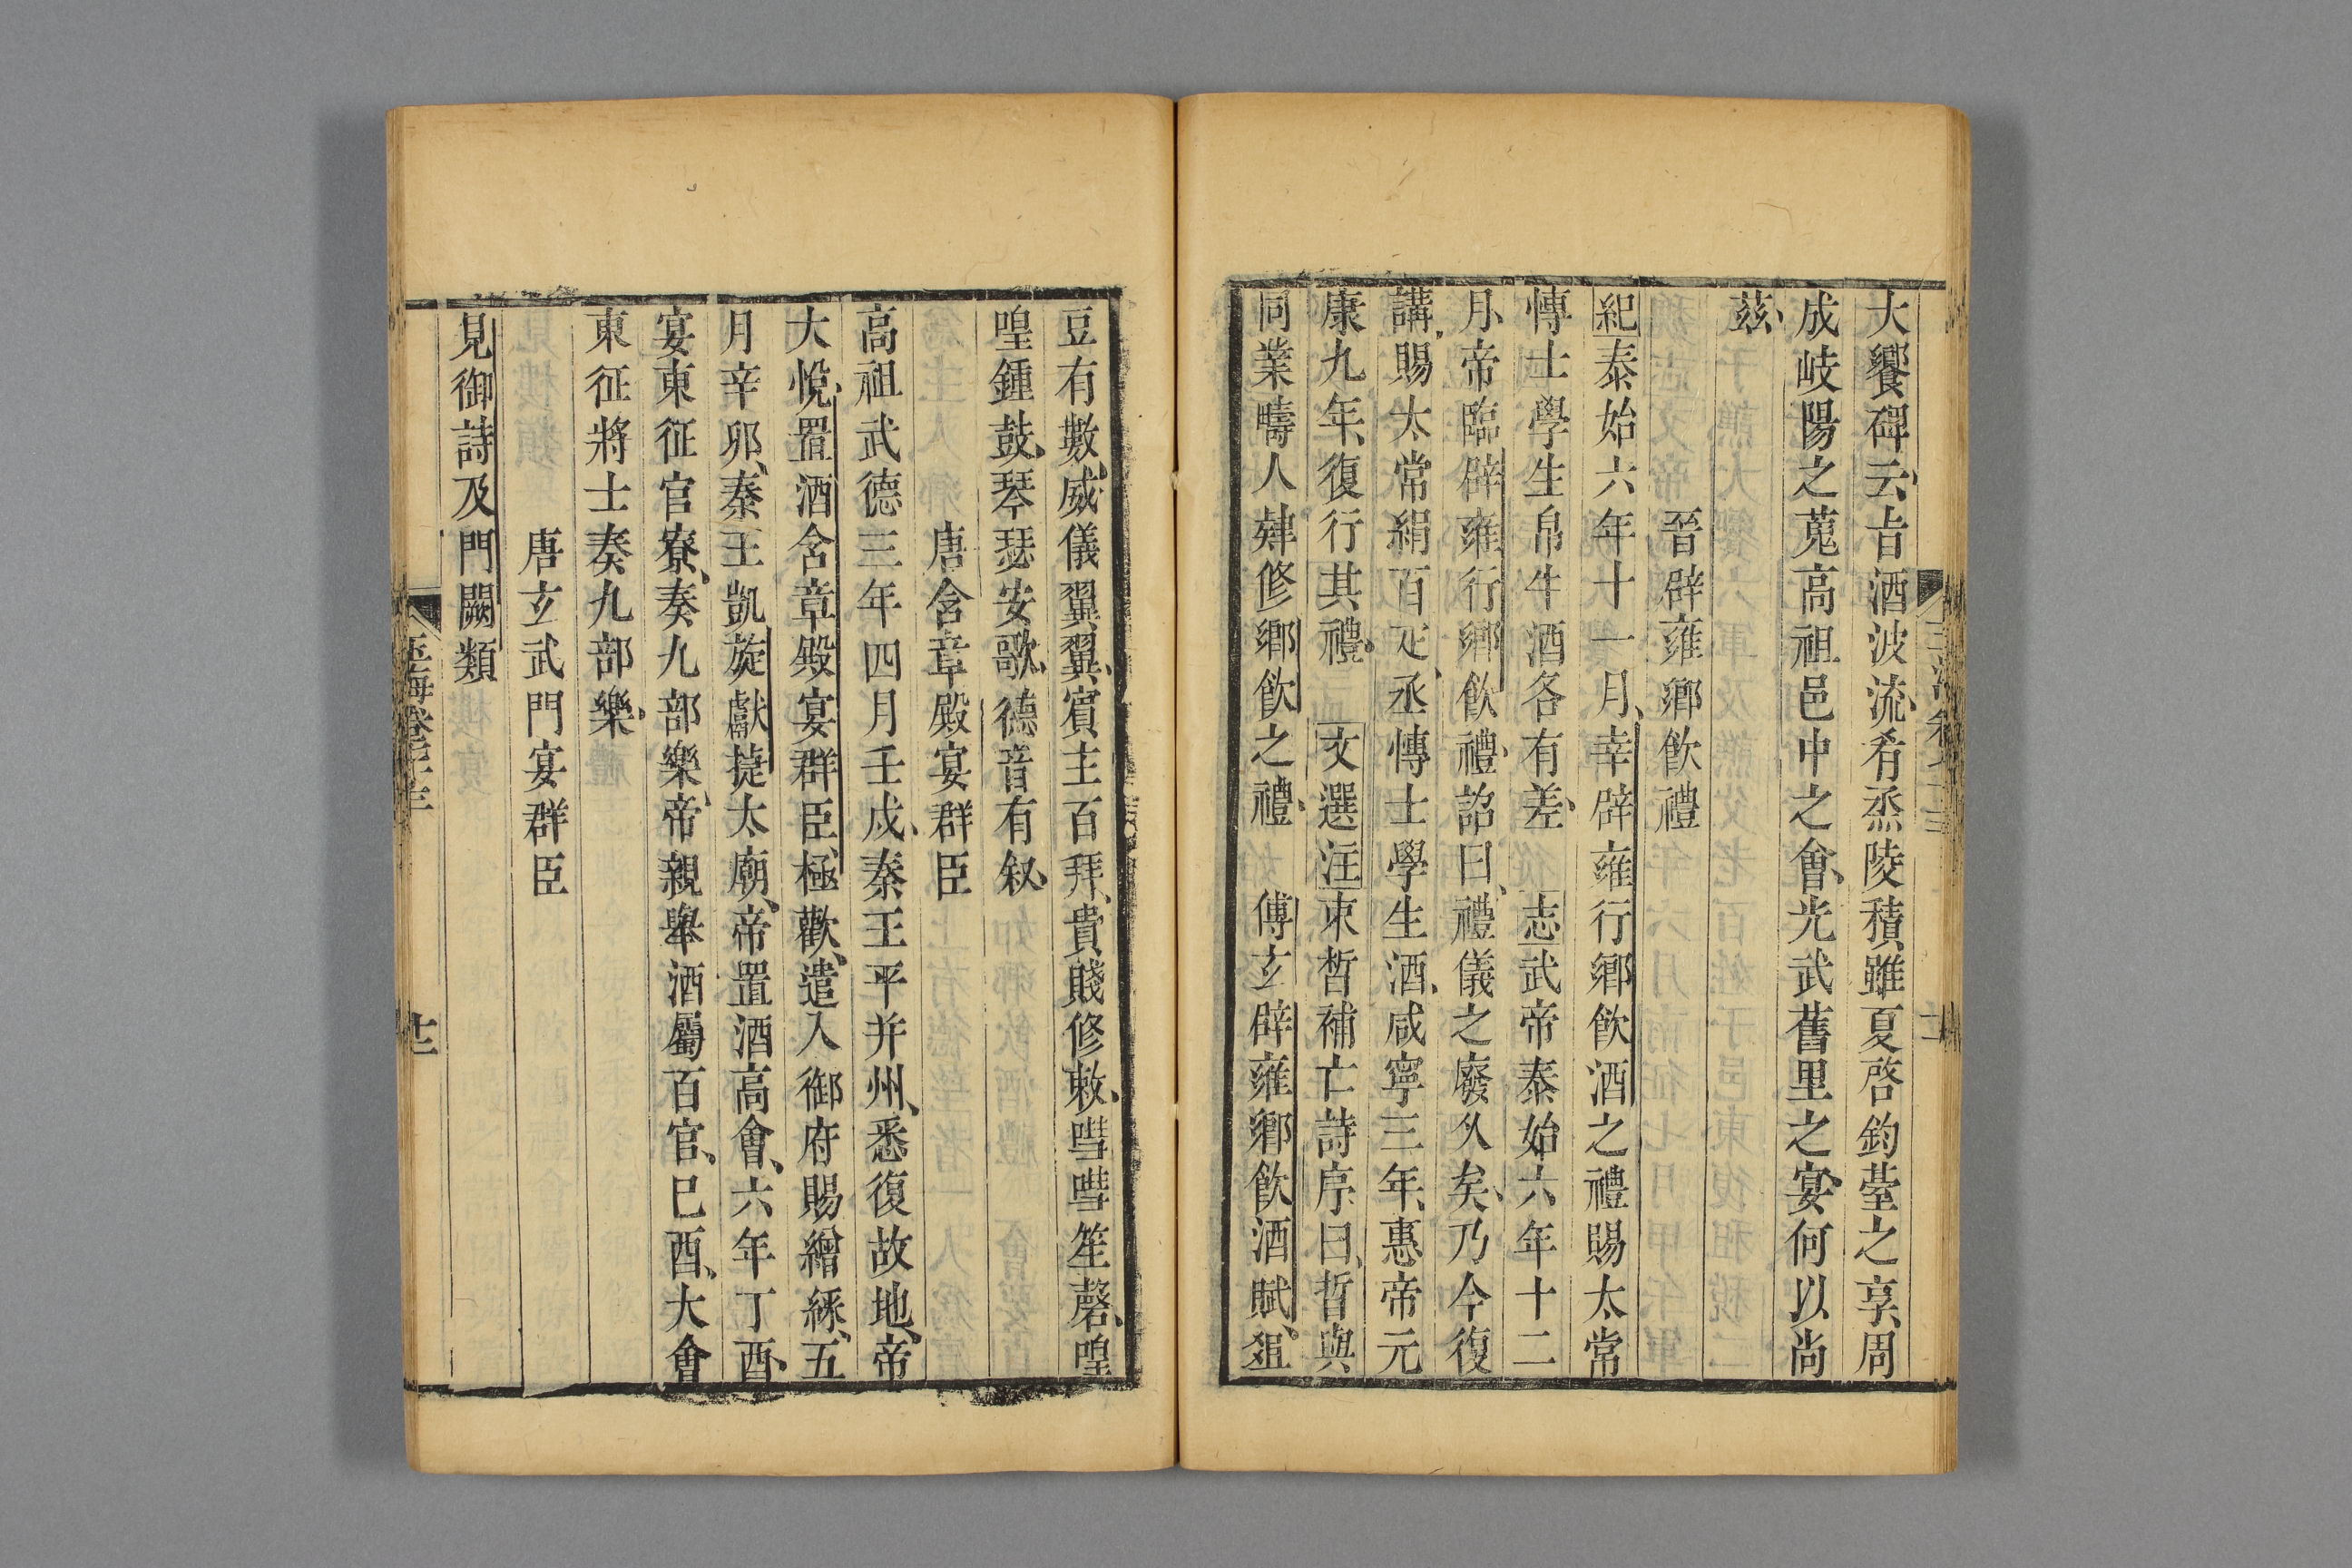 大饗碑云、旨酒波流、肴烝陵積、雖夏啓鈞臺之享、周
成岐陽之蒐、高祖邑中之會、光武舊里之宴、何以尚
茲、
晉辟雍鄉飲禮
紀泰始六年十一月、幸辟雍行鄉飲酒之禮賜太常
博士學生帛牛酒各有差、志武帝泰始六年十二
月、帝臨辟雍行鄉飲禮、詔曰、禮儀之廢久矣、乃今復
講、賜太常絹百疋、丞博士學生酒、咸寧三年、惠帝元
康九年、復行其禮。文選注束晳補亡詩序曰、晳與
同業疇人肄修鄉飲之禮、傅玄辟雍鄉飲酒賦、俎
豆有數、威儀翼翼、賓主百拜、貴賤修敕、嘒嘒笙磬、喤
喤鍾鼓、琴瑟安歌、德音有叙、
唐含章殿宴群臣
高祖武德三年四月壬戌、秦王平并州、悉復故地、帝
大悅、置酒含章殿宴群臣、極歡、遣入御府賜繒綵、五
月辛卯、秦王凱旋獻捷太廟、帝置酒高會、六年丁酉、
宴東征官寮、奏九部樂、帝親舉酒屬百官、巳酉、大會
東征將士奏九部樂。
唐玄武門宴群臣
見御詩及門闕類
玉海卷七十三
十二